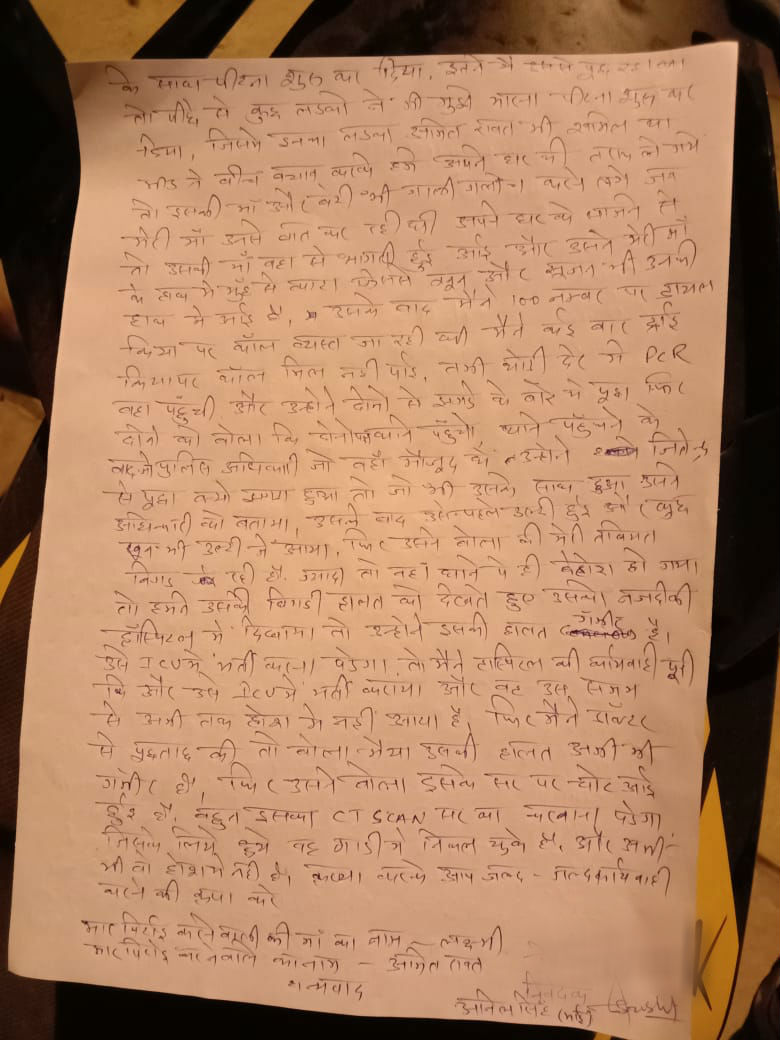 के साथ पीटना शुरू कर दिया, इतने में
तो पीछे से कुछ लडको ने भी मुझे मारना पीटना शुरू कर
दिया, जिसमे इनका लडका अमित रावत भी शामिल था
भीड ने बीच बचाव करके हमे अपने घर की तरफ ले गये
तो इसकी माँ और भी गाली गलोच करने लगे जब
मेरी माँ उनसे बात कर रही थी अपने घर के सामने से
तो उसकी माँ वहा से भागती हुई आई और उसने मेरी माँ
के हाथ मे मुँह से काटा जिससे खून और सूजन भी उनकी
हाथ मे आई है, उसके बाद मैने 100 नम्बर पर डायल
किया पर कॉल व्यस्त जा रही थी मैने कई बार ट्राई
किया पर कॉल मिल नही पाई, तभी थोडी देर मे PCR
वहा पहुँची और उन्होने दोनो से झगडे के बारे मे पूछा फिर
दोनो को बोला कि दोनो थाने पहुँचो थाने पहुँचने के
बाद जो पुलिस अधिकारी जो वहाँ मौजूद थे उन्होने जितेन्द्र
से पूछा क्यो झगडा हुआ तो जो भी उसके साथ हुआ उसने
अधिकारी को बताया, उसके बाद उसे पहले उल्टी हुई और कुछ
खून भी उल्टी मे आया, फिर उसने बोला की मेरी तबियत
बिगड रही है. ज्यादा तो वहाँ थाने पे ही बेहोश हो गया
तो हमने उसकी बिगडी हालत को देखते हुए उसको नजदीकी
हॉस्पिटल मे दिखाया तो उन्होने इसकी हालत गंभीर है।
उसे ICU मे भर्ती करना पडेगा, तो मैने हास्पिटल की कार्यवाही पूरी
कि और उसे ICU मे भर्ती कराया और वह उस समय
से अभी तक होश मे नही आया है, फिर मैने डॉक्टर
से पूछताछ की तो बोला भैया उसकी हालत अभी भी
गंभीर है, फिर उसने बोला इसके सर पर चोट आई
हुई है, बहुत इसका CT SCAN सर का करवाना पडेगा
जिसके लिये हम वह गाडी मे निकल चुके है, और अभी
भी वो होश मे नही है, कृप्या करके आप जल्द-जल्द कार्यवाही
करने की कृपा करे
मार पिटाई करने वाले की माँ का नाम - लक्ष्मी
मार पिटाई करने वाले का नाम - अमित रावत
धन्यवाद
निवेदक
अनिल सिंह (भाई)